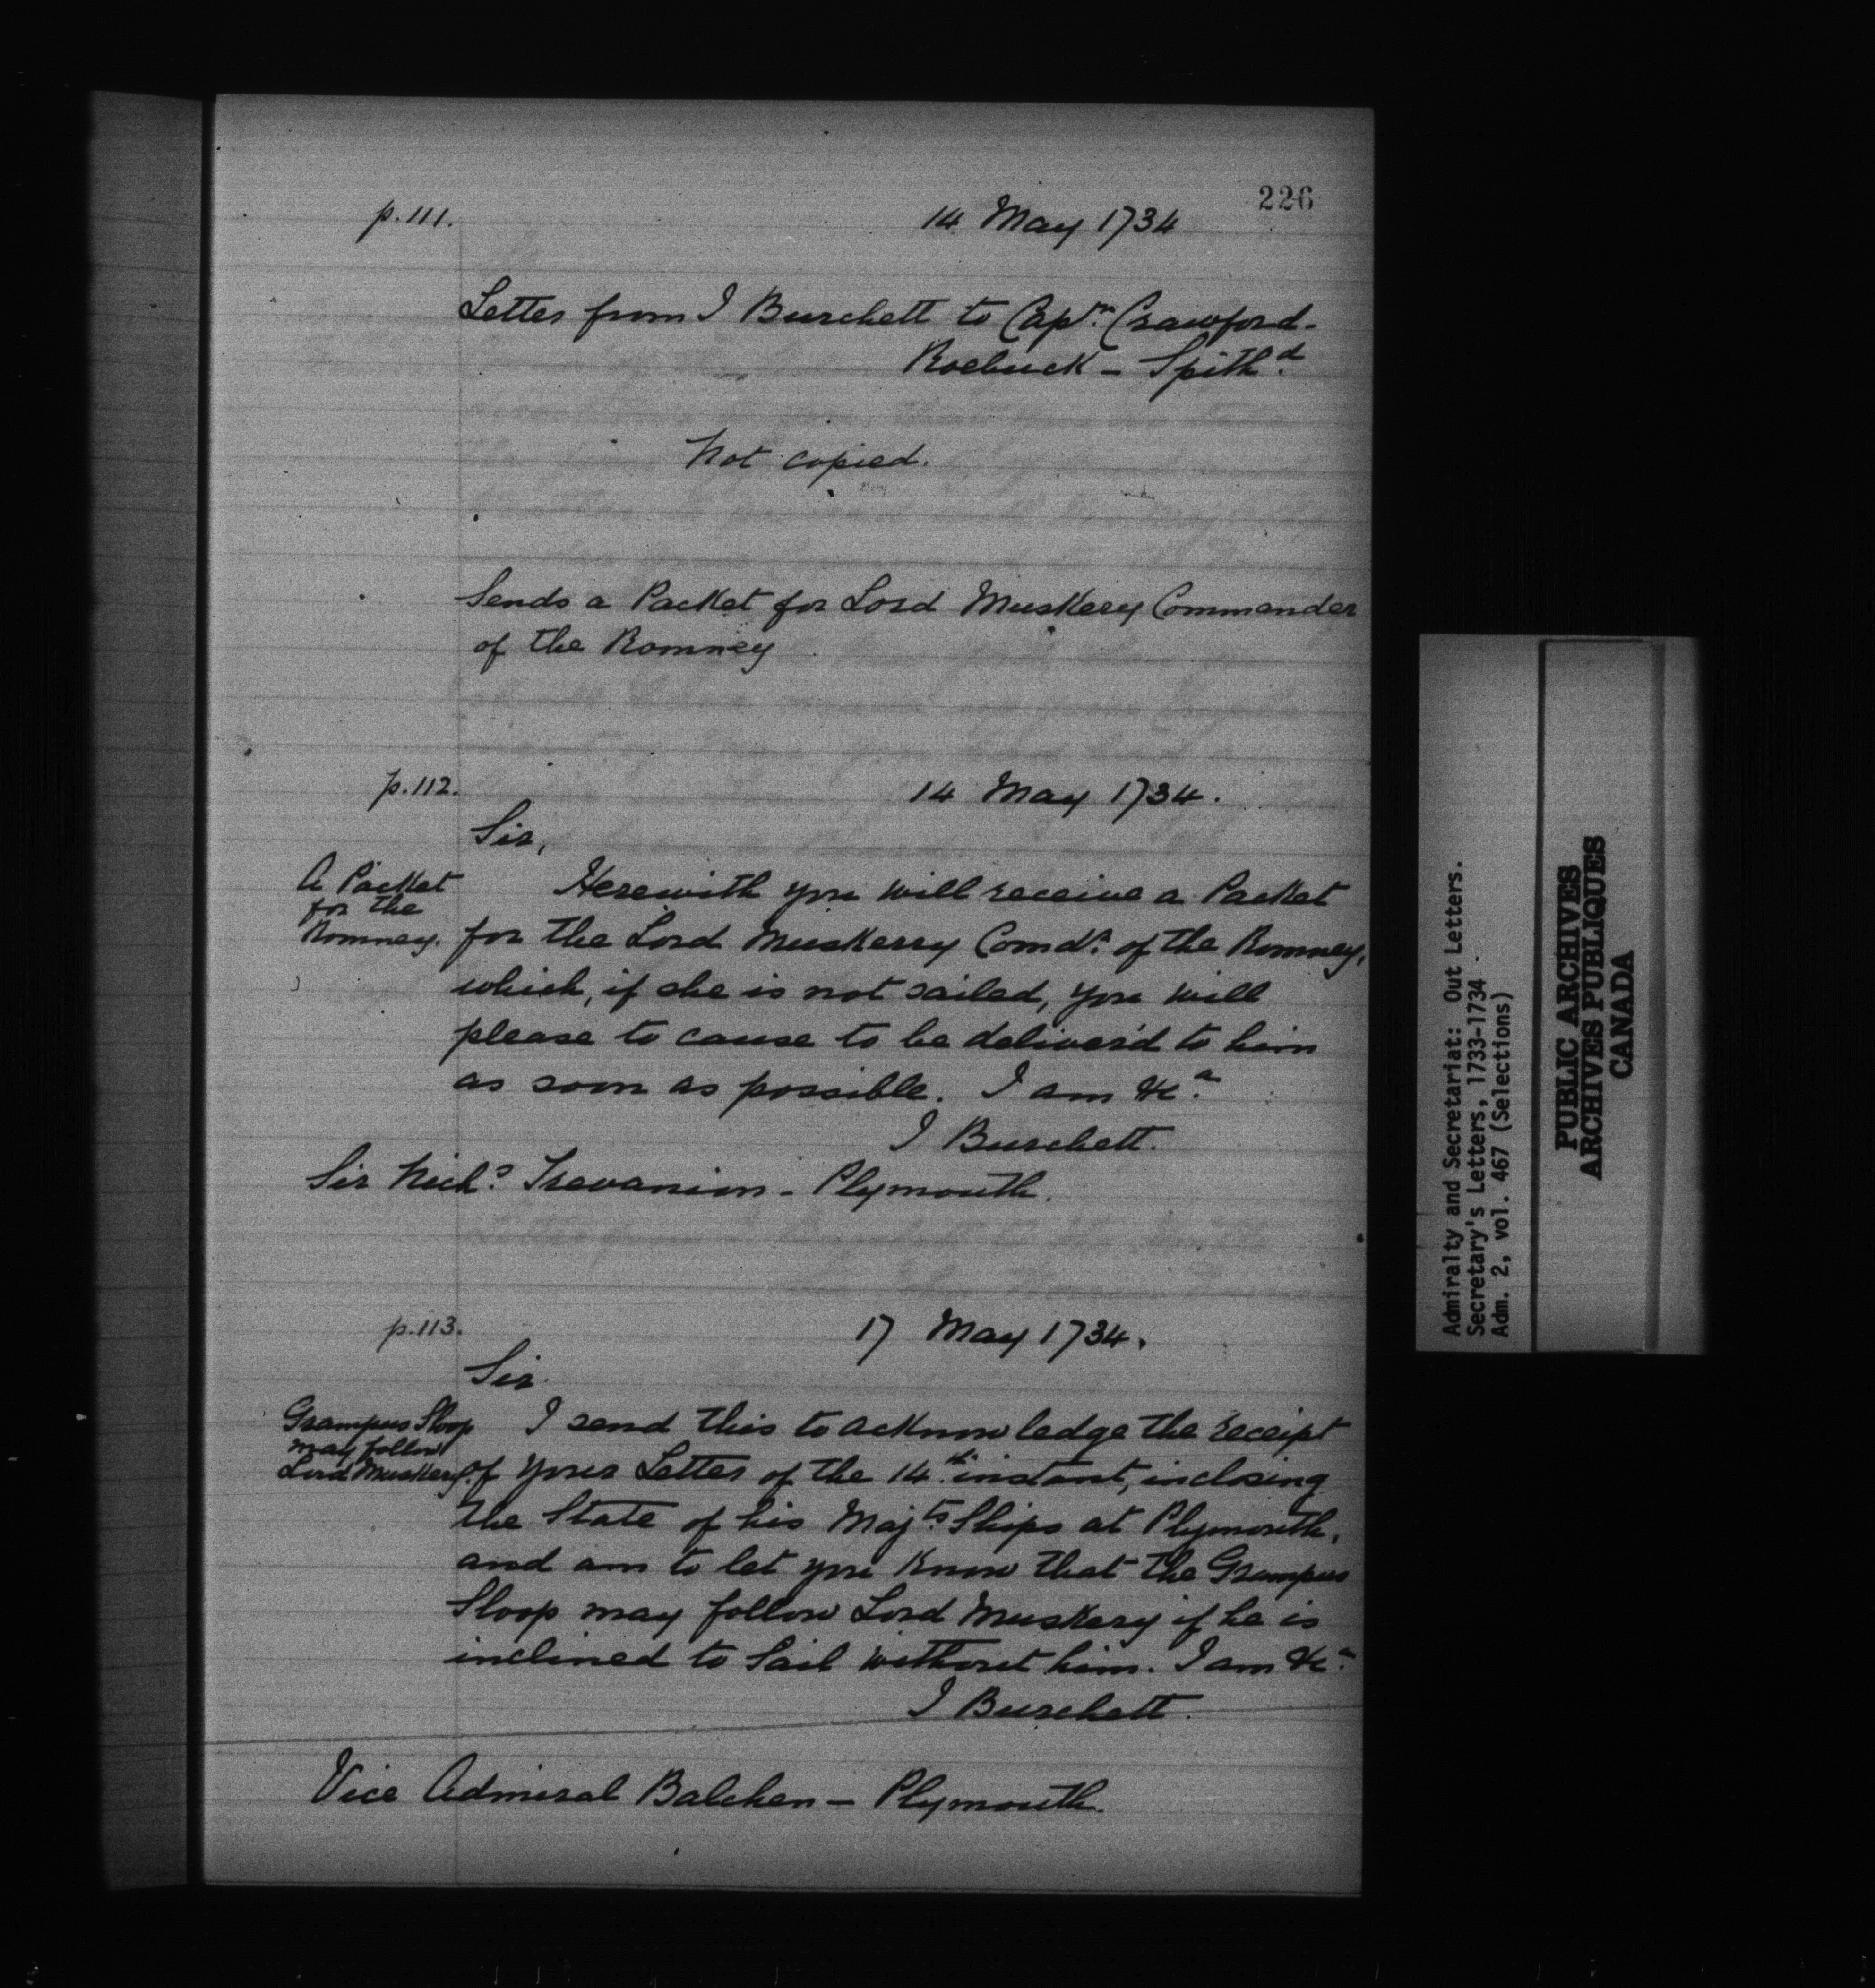 226
p.111.
14 May 1734
Letter from J Burchett to Capⁿ. Crawford.
Roebuck - Spithᵈ.
Not copied.
Sends a Packet for Lord Muskery Commander
of the Romney
p.112.
14 May 1734.
Sir,
A Packet
for the
Romney.
Herewith you will receive a Packet
for the Lord Muskerry Comdʳ. of the Romney,
which, if she is not sailed, you will
please to cause to be deliver'd to him
as soon as possible. I am &cᵃ.
J Burchett.
Sir Nichˢ. Trevanion - Plymouth.
p.113.
17 May 1734.
Sir
Grampus Sloop
may follow
Lord Muskery.
I send this to acknowledge the receipt
of your Letter of the 14ᵗʰ. instant, inclosing
the State of his Majᵗˢ. Ships at Plymouth,
and am to let you know that the Grampus
Sloop may follow Lord Muskery if he is
inclined to Sail without him. I am &cᵃ.
J Burchett.
Vice Admiral Balchen - Plymouth.
Admiralty and Secretariat: Out Letters.
Secretary's Letters, 1733-1734
Adm. 2, vol. 467 (Selections)
PUBLIC ARCHIVES
ARCHIVES PUBLIQUES
CANADA